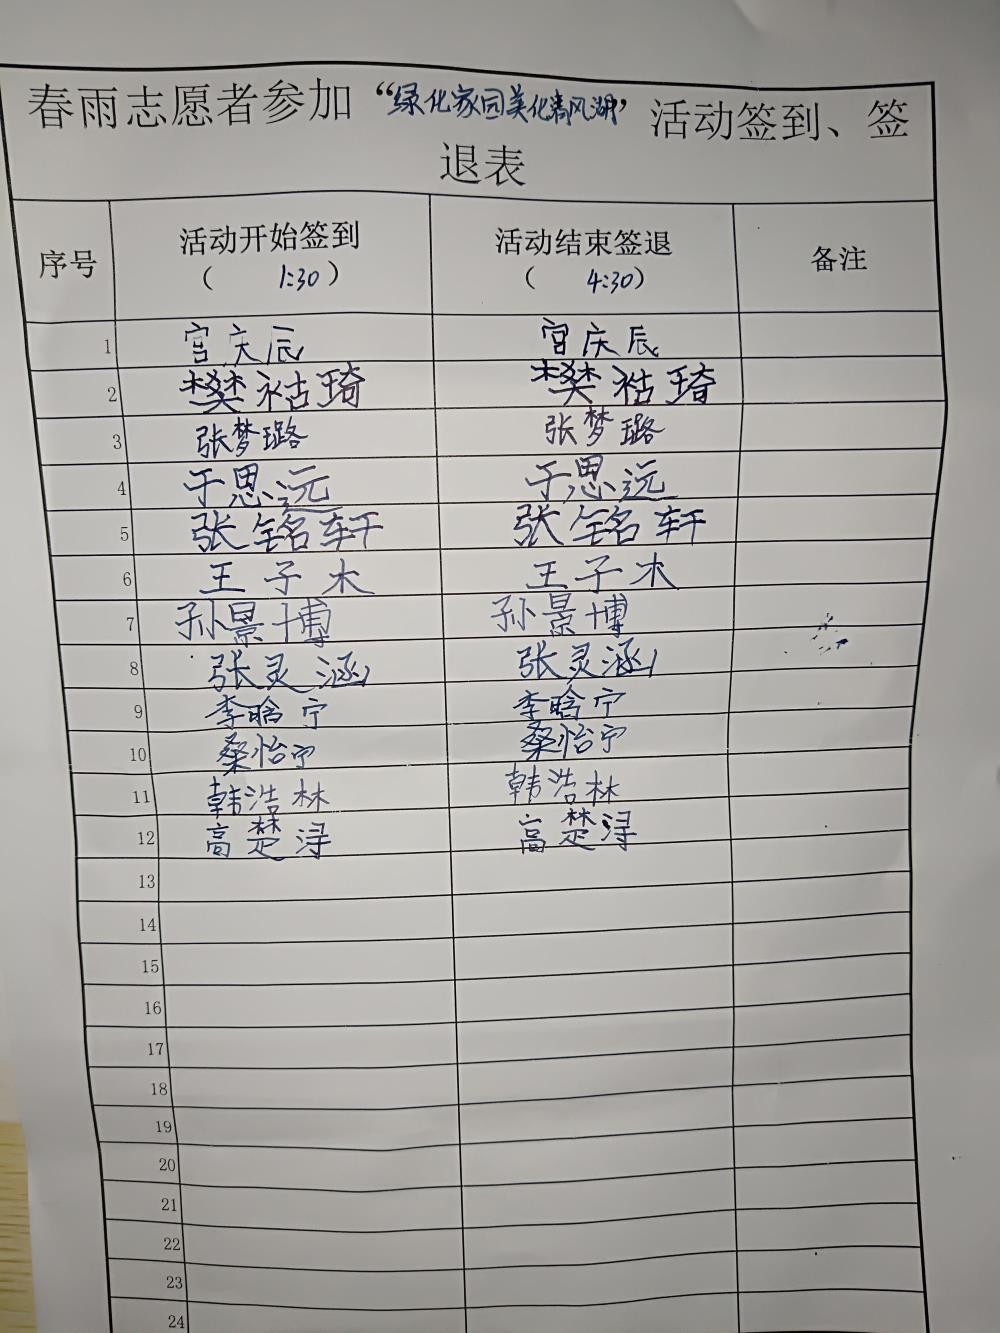 春雨志愿者参加“绿化家园美化清风湖”活动签到、签
退表
序号 活动开始签到 活动结束签退 备注
( 1:30 ) ( 4:30 )
1 宫庆辰 宫庆辰
2 樊祜琦 樊祜琦
3 张梦璐 张梦璐
4 于思远 于思远
5 张铭轩 张铭轩
6 王子木 王子木
7 孙景博 孙景博
8 张灵涵 张灵涵
9 李晗宁 李晗宁
10 桑怡宁 桑怡宁
11 韩浩林 韩浩林
12 高楚浔 高楚浔
13
14
15
16
17
18
19
20
21
22
23
24